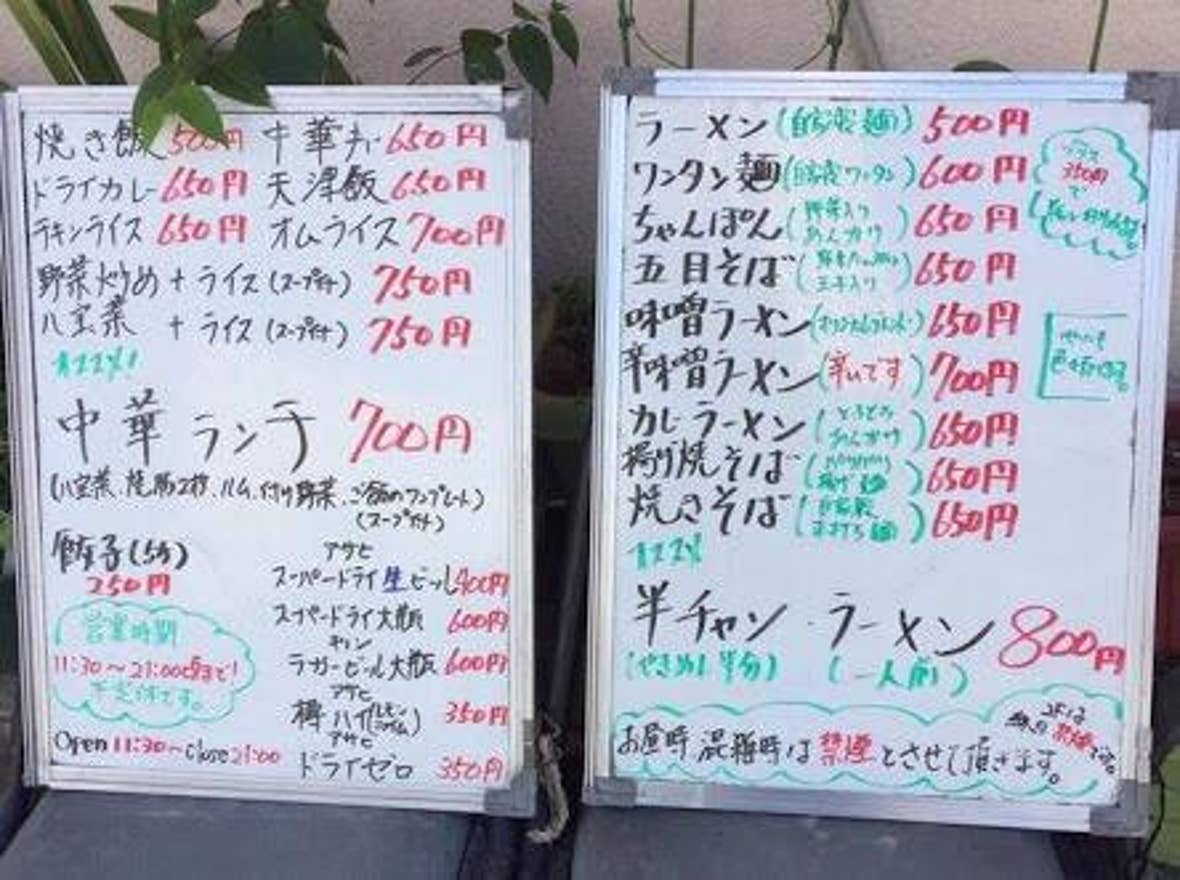 焼き飯 500円 中華 650円
ドライカレー 650円 天津飯 650円
チキンライス 650円 オムライス 700円
野菜炒め + ライス (スープ付) 750円
八宝菜 + ライス (スープ付) 750円
オススメ!
中華ランチ 700円
(八宝菜、焼豚2枚、ハム、付け野菜、ご飯のワンプレート)
(スープ付)
餃子(5ケ)
250円
アサヒ
スーパードライ生ビール 400円
スーパードライ大瓶 600円
キリン
ラガービール大瓶 600円
アサヒ
樽ハイ(レモン ライム) 350円
アサヒ
ドライゼロ 350円
営業時間
11:30～21:00頃まで!
不定休です。
Open 11:30～Close 21:00
ラーメン (自家製麺) 500円
ワンタン麺 (自家製ワンタン) 600円
ちゃんぽん (野菜入り あんかけ) 650円
五目そば 650円
味噌ラーメン (オリジナルブレンド) 650円
辛味噌ラーメン (辛いです) 700円
カレーラーメン (とろとろ あんかけ) 650円
揚げ焼そば 650円
焼きそば 650円
オススメ
プラス
350円
で
半チャン・ラーメン 800円
(やきめし半分) (一人前)
お昼時 混雑時は禁煙とさせて頂きます。